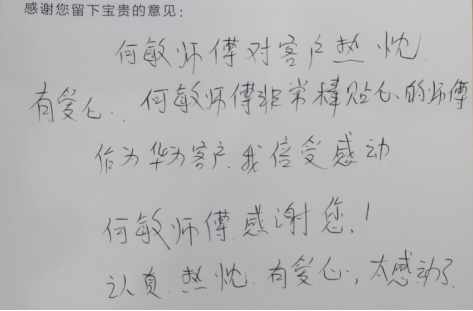 感谢您留下宝贵的意见：
何敏师傅对客户热忱
有爱心..何敏师傅非常棒贴心的师傅
作为华为客户.我倍受感动
何敏师傅感谢您.!
认真.热忱.有爱心,太感动了